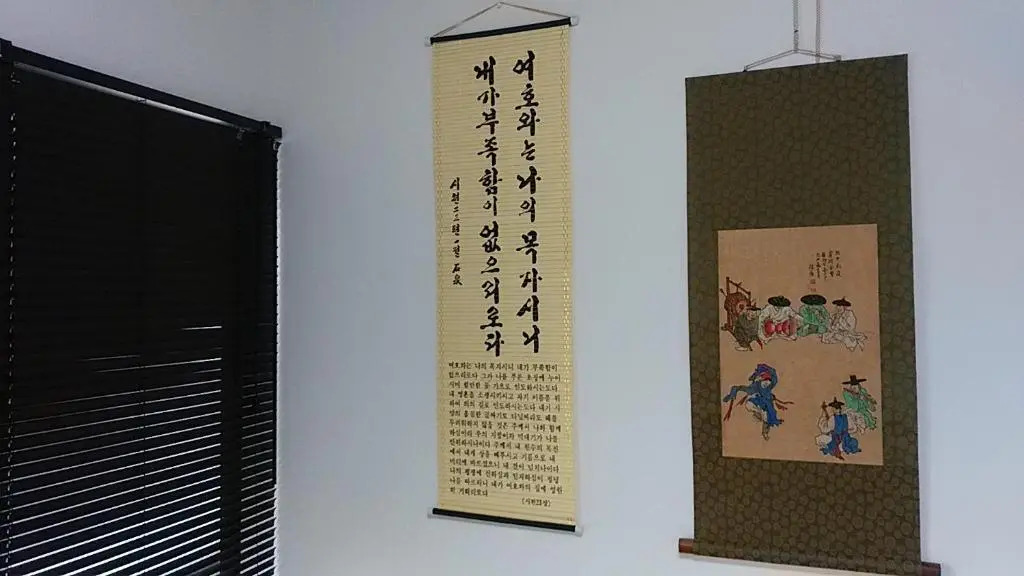 여호와는 나의 목자시니
내가 부족함이 없으리로다
시편二三편一절
여호와는 나의 목자시니 내가 부족함이
없으리로다 그가 나를 푸른 초장에 누이
시며 쉴만한 물 가으로 인도하시는도다
내 영혼을 소생시키시고 자기 이름을 위
하여 의의 길로 인도하시는도다 내가 사
망의 음침한 골짜기로 다닐찌라도 해를
두려워하지 않을 것은 주께서 나와 함께
하심이라 주의 지팡이와 막대기가 나를
안위하시나이다 주께서 내 원수의 목전
에서 내게 상을 베푸시고 기름으로 내
머리에 바르셨으니 내 잔이 넘치나이다
나의 평생에 선하심과 인자하심이 정녕
나를 따르리니 내가 여호와의 집에 영원
히 거하리로다
(시편23장)